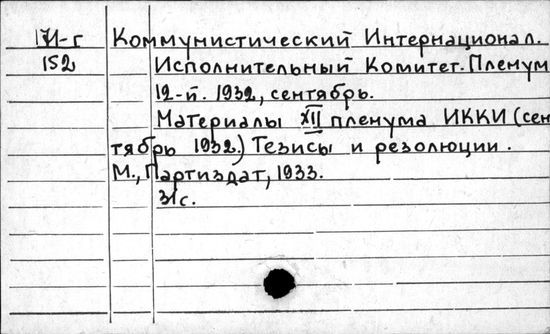 И-г Коммунистический Интернационал.
152 Исполнительный Комитет. Пленум
12-й. 1932, сентябрь.
Материалы XII пленума ИККИ (сен
тябрь 1932.) Тезисы и резолюции.
М., Партиздат, 1933.
31с.